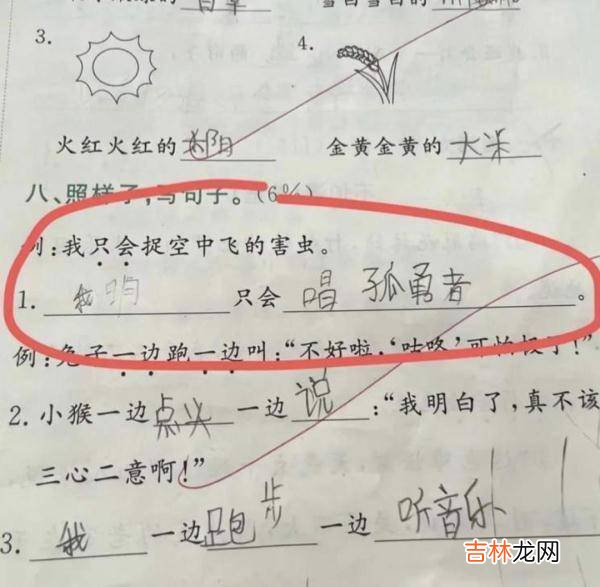 3. 4.
火红火红的 太阳 金黄金黄的 大米
八、照样子,写句子。(6%)
例:我只会捉空中飞的害虫。
1. 只会 唱 孤勇者 。
例:兔子一边跑一边叫:“不好啦,‘咕咚’可怕极了!”
2. 小猴一边 点头 一边 说 :“我明白了,真不该
三心二意啊!”
3. 我 一边 跑步 一边 听音乐
吉林龙网